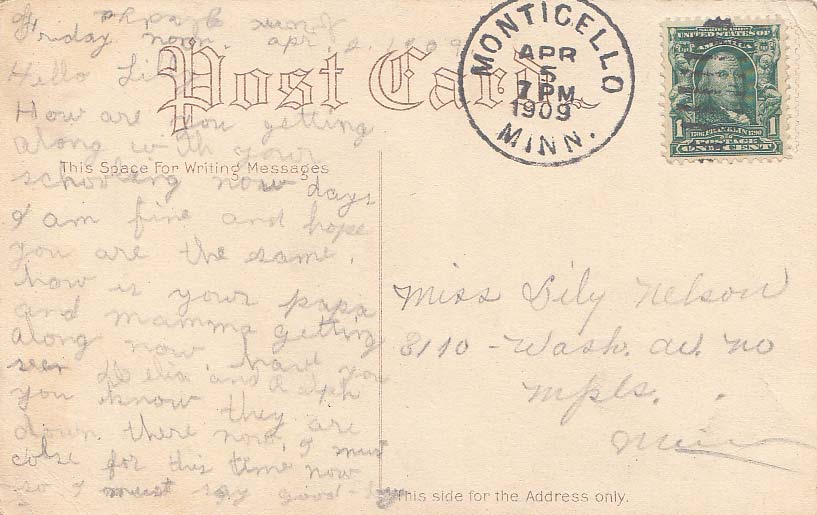 Post Card
MONTICELLO
APR
5
7 PM
1909
MINN.
SERIES 1902
UNITED STATES OF AMERICA
1 1706 FRANKLIN 1790 1
POSTAGE
ONE CENT
This Space For Writing Messages
Friday noon. apr. 2. 1909
Hello Lily
How are you getting
along with your
schooling now days
I am fine and hope
you are the same.
how is your papa
and mamma getting
along now. have you
seen Delia and Ralph
you know they are
down there now. I must
colse for this time now
so I must say good-bye
Miss Lily Nelson
3110 - Wash. av. no
Mpls.
Minn
This side for the Address only.